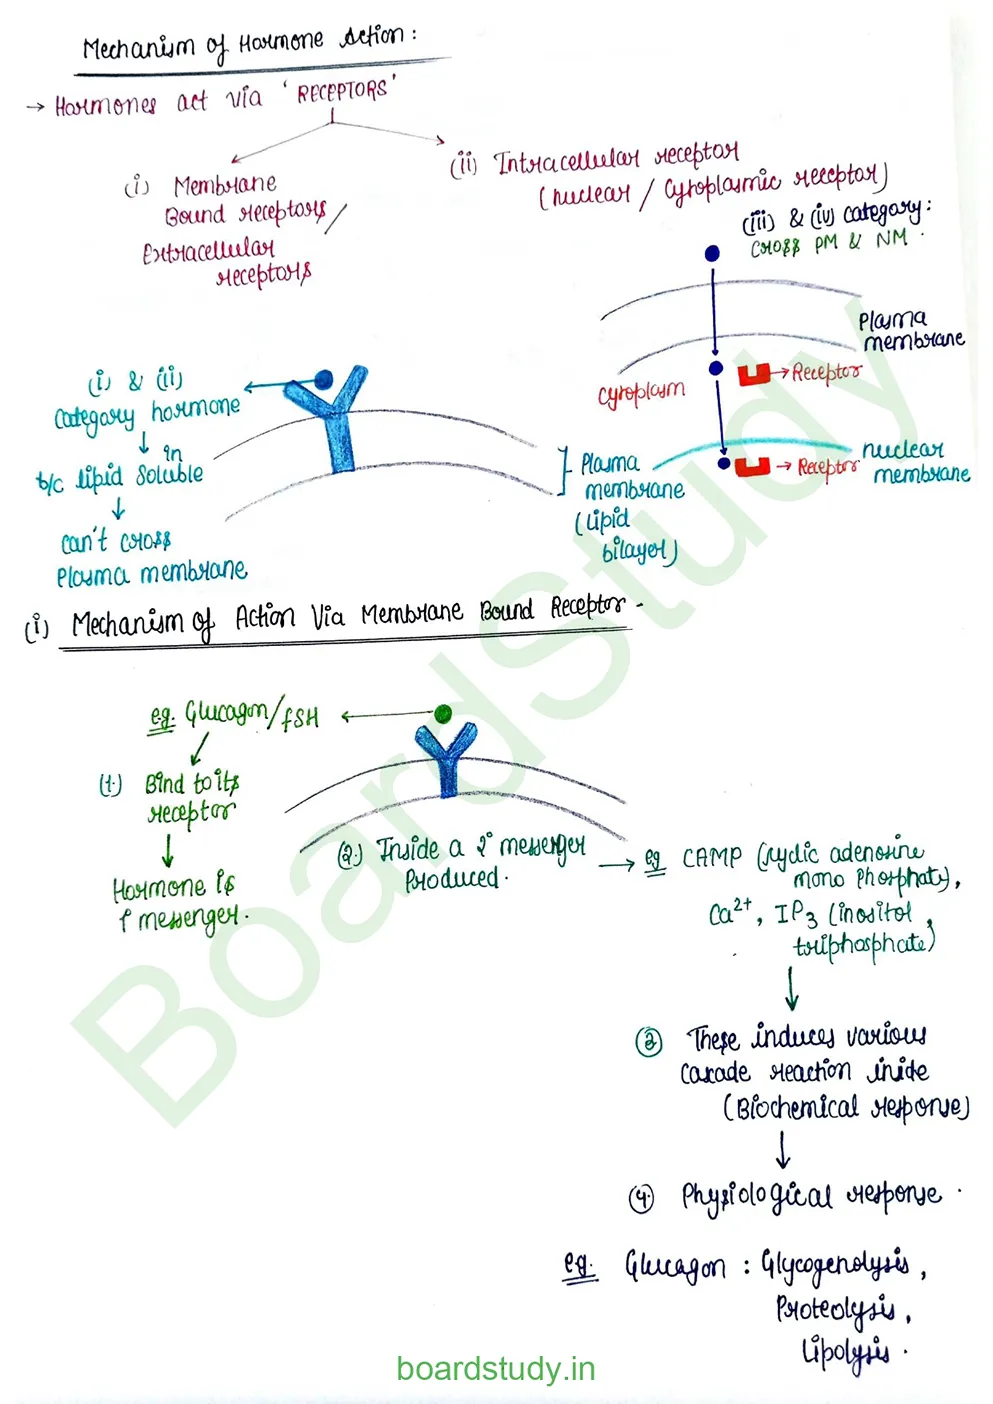 Mechanism of Hormone Action:
→ Hormones act via 'RECEPTORS'
(i) Membrane
Bound receptors/
Extracellular
receptors
(ii) Intracellular receptor
(nuclear / Cytoplasmic receptor)
(iii) & (iv) category:
cross PM & NM.
Plasma
membrane
Cytoplasm
→ Receptor
nuclear
membrane
→ Receptor
(i) & (ii)
category hormone
↓ in
b/c lipid soluble
↓
can't cross
plasma membrane
Plasma
membrane
(lipid
bilayer)
(i) Mechanism of Action Via Membrane Bound Receptor -
eg. Glucagon/FSH
(1.) Bind to its
receptor
↓
Hormone is
1° messenger.
(2.) Inside a 2° messenger
Produced.
→ eg CAMP (cyclic adenosine
mono phosphate),
Ca2+, IP3 (inositol,
triphosphate)
↓
(3) These induces various
cascade reaction inside
(Biochemical response)
↓
(4) Physiological response.
eg. Glucagon : Glycogenolysis,
Proteolysis,
Lipolysis.
BoardStudy
boardstudy.in